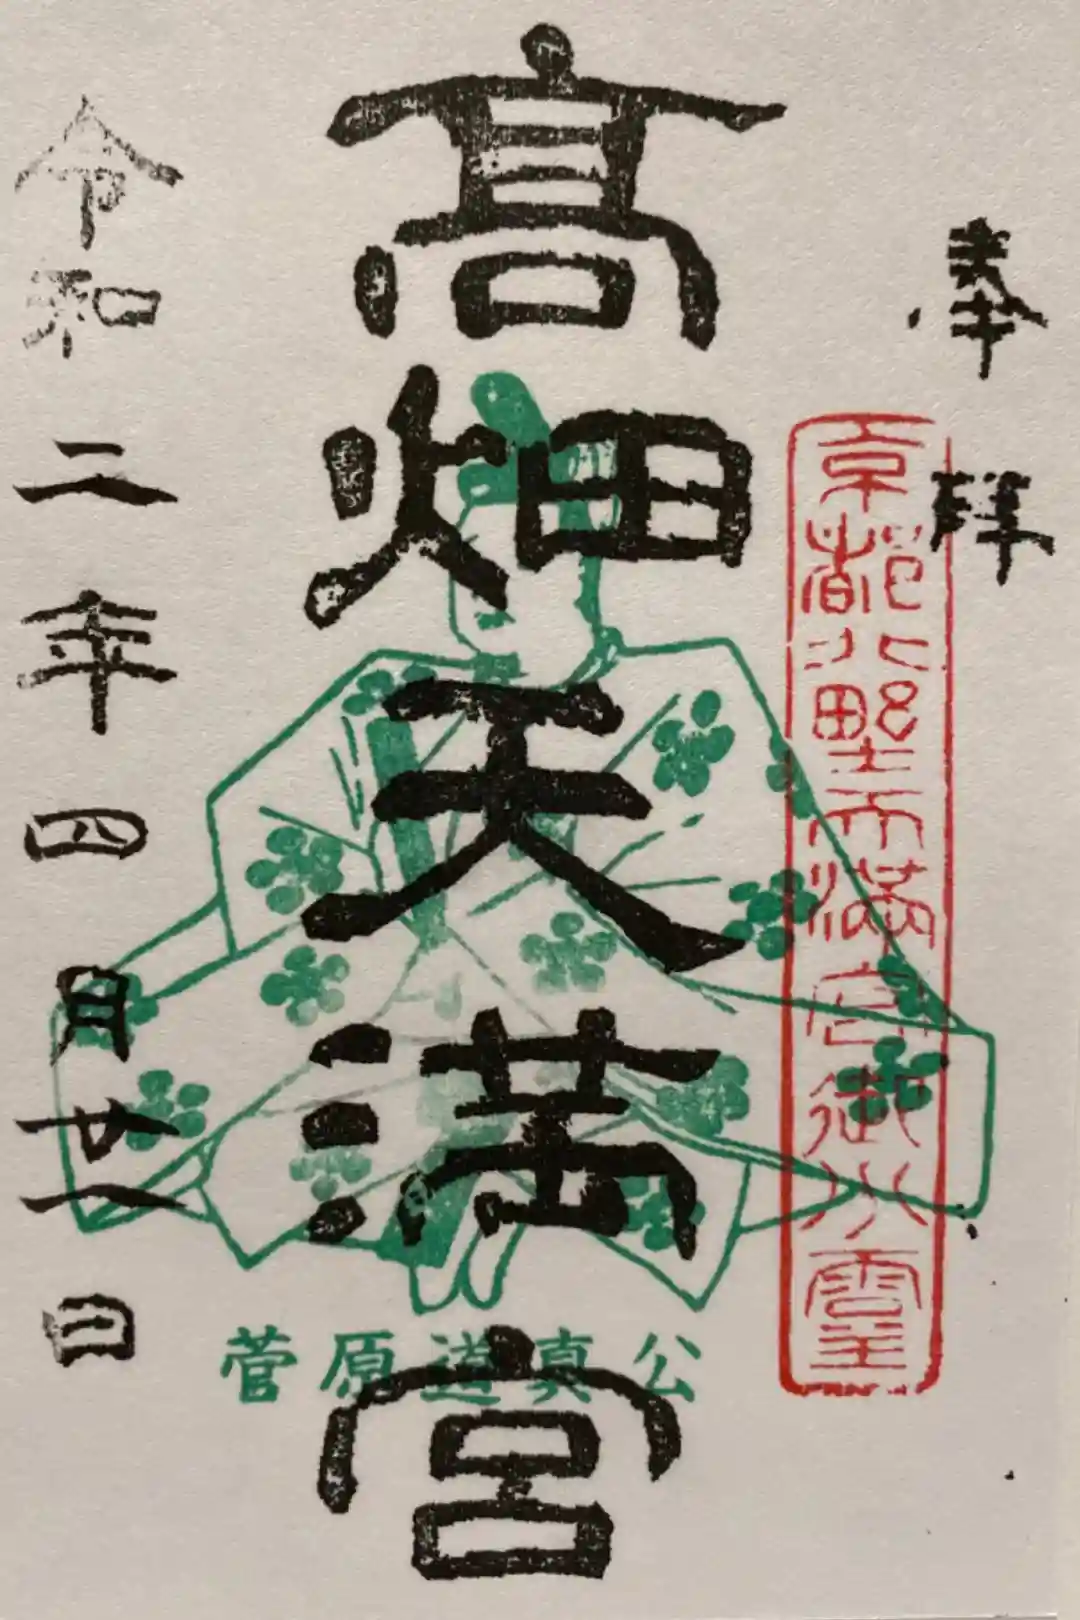 奉拝
京都北野天満宮御分霊
髙畑天満宮
菅原道真公
令和二年四月廿一日